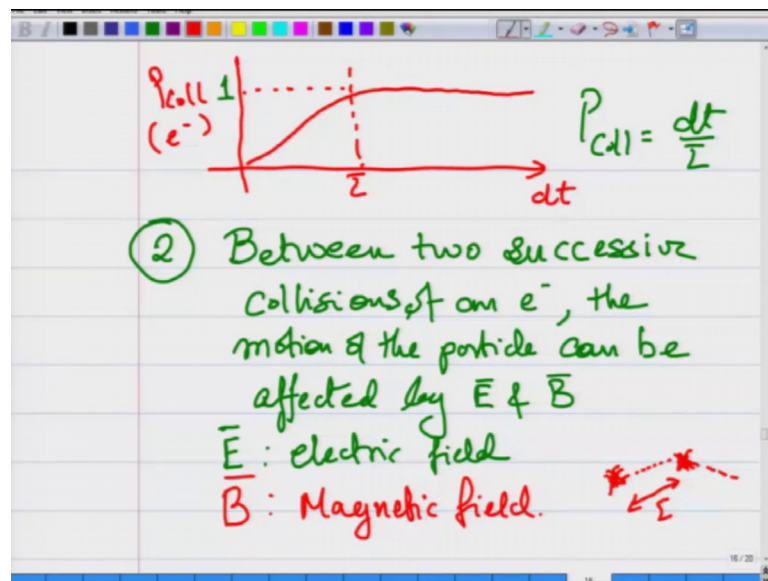 B I
P_coll 1
(e⁻)
τ
dt
P_coll = dt/τ
② Between two successive
collisions of an e⁻, the
motion of the particle can be
affected by E̅ & B̅
E̅ : electric field
B̅ : Magnetic field.
τ
16 / 20